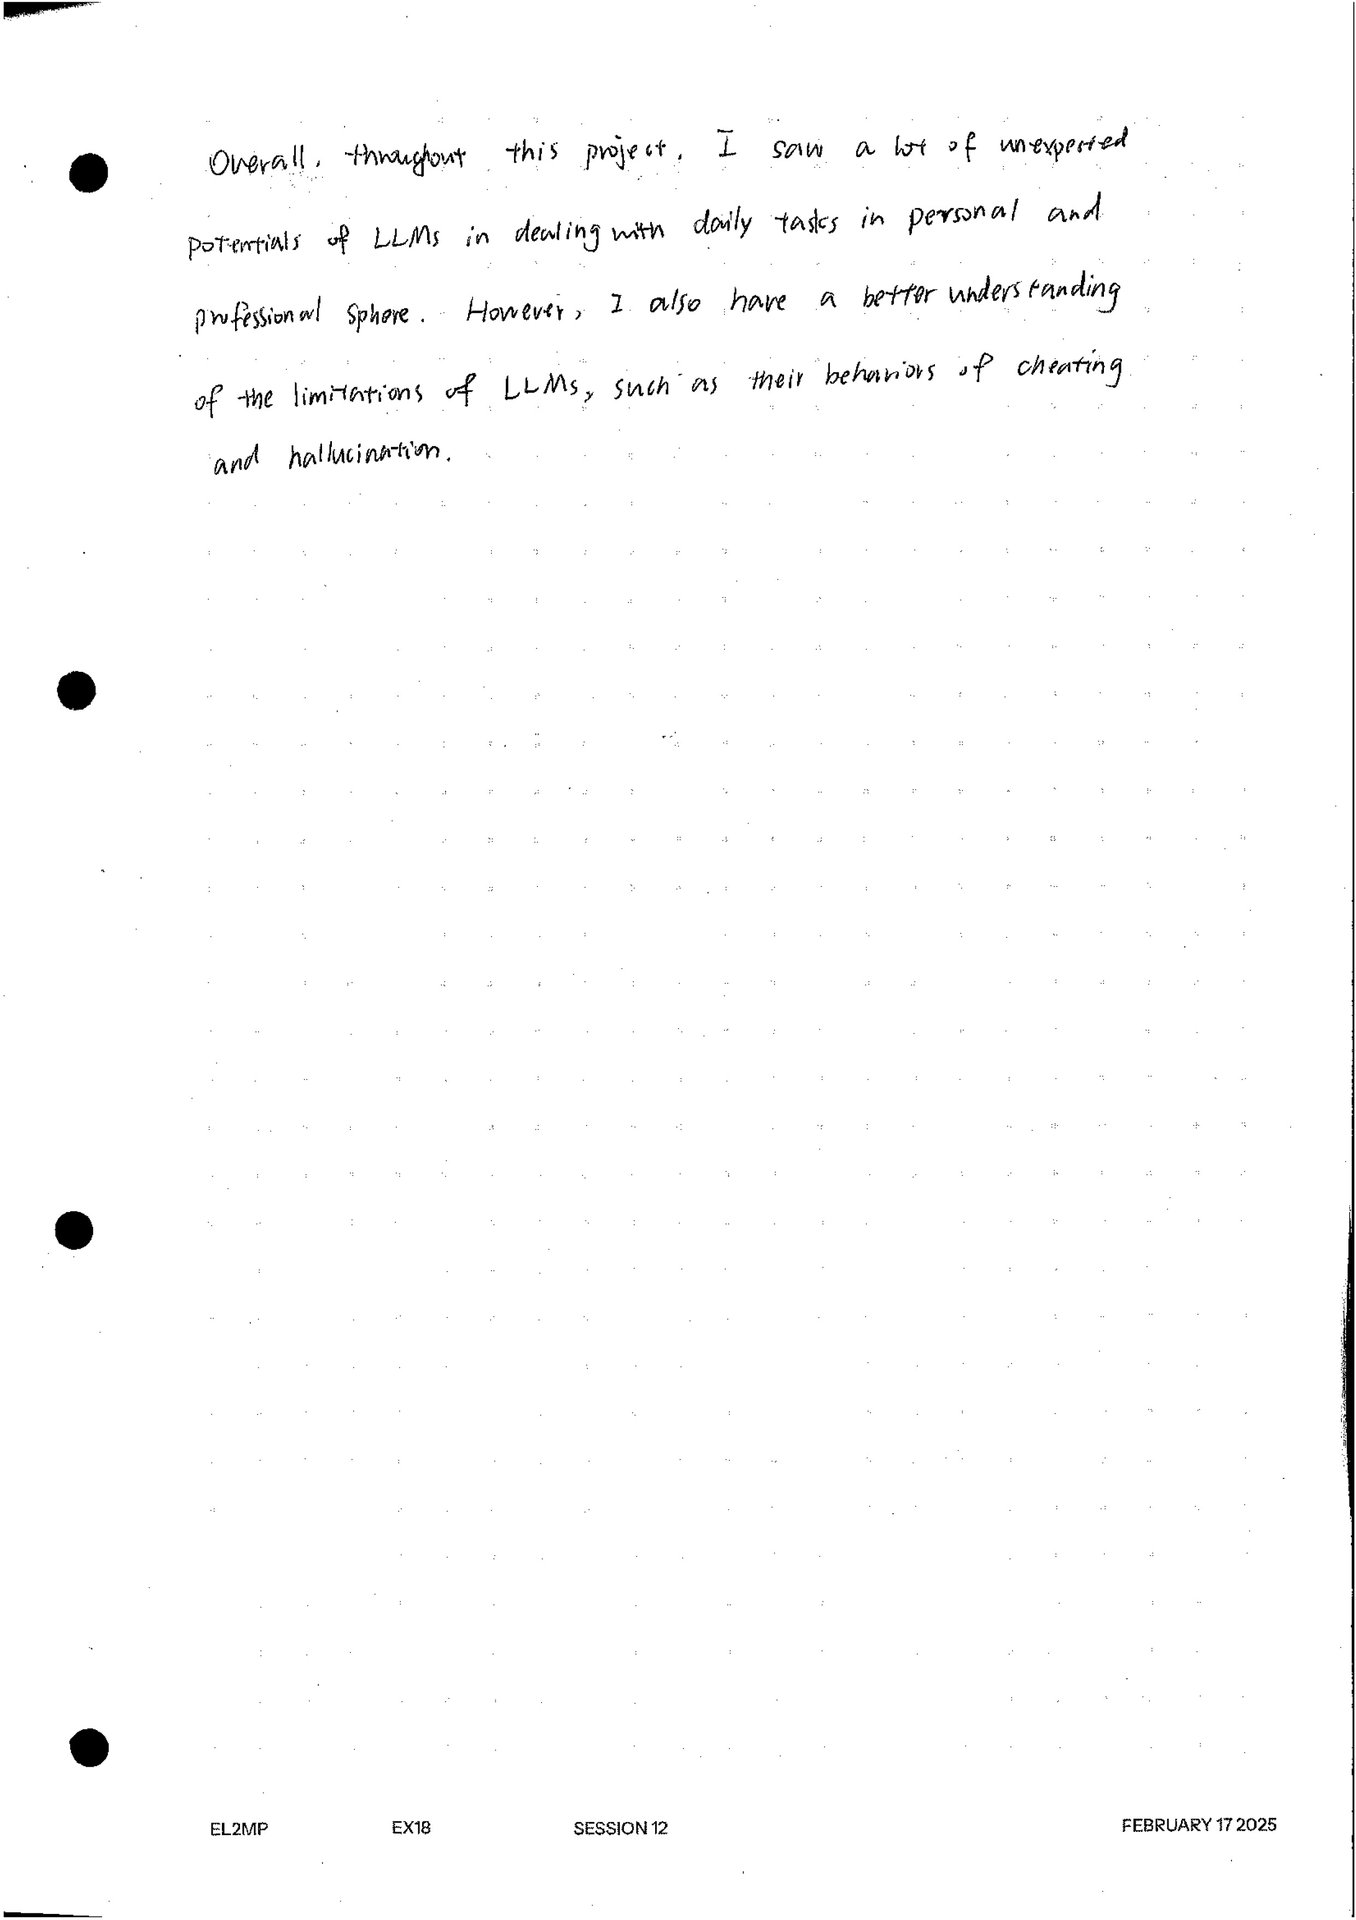 Overall, throughout this project, I saw a lot of unexpected
potentials of LLMs in dealing with daily tasks in personal and
professional sphere. However, I also have a better understanding
of the limitations of LLMs, such as their behaviors of cheating
and hallucination.
EL2MP EX18 SESSION 12 FEBRUARY 17 2025